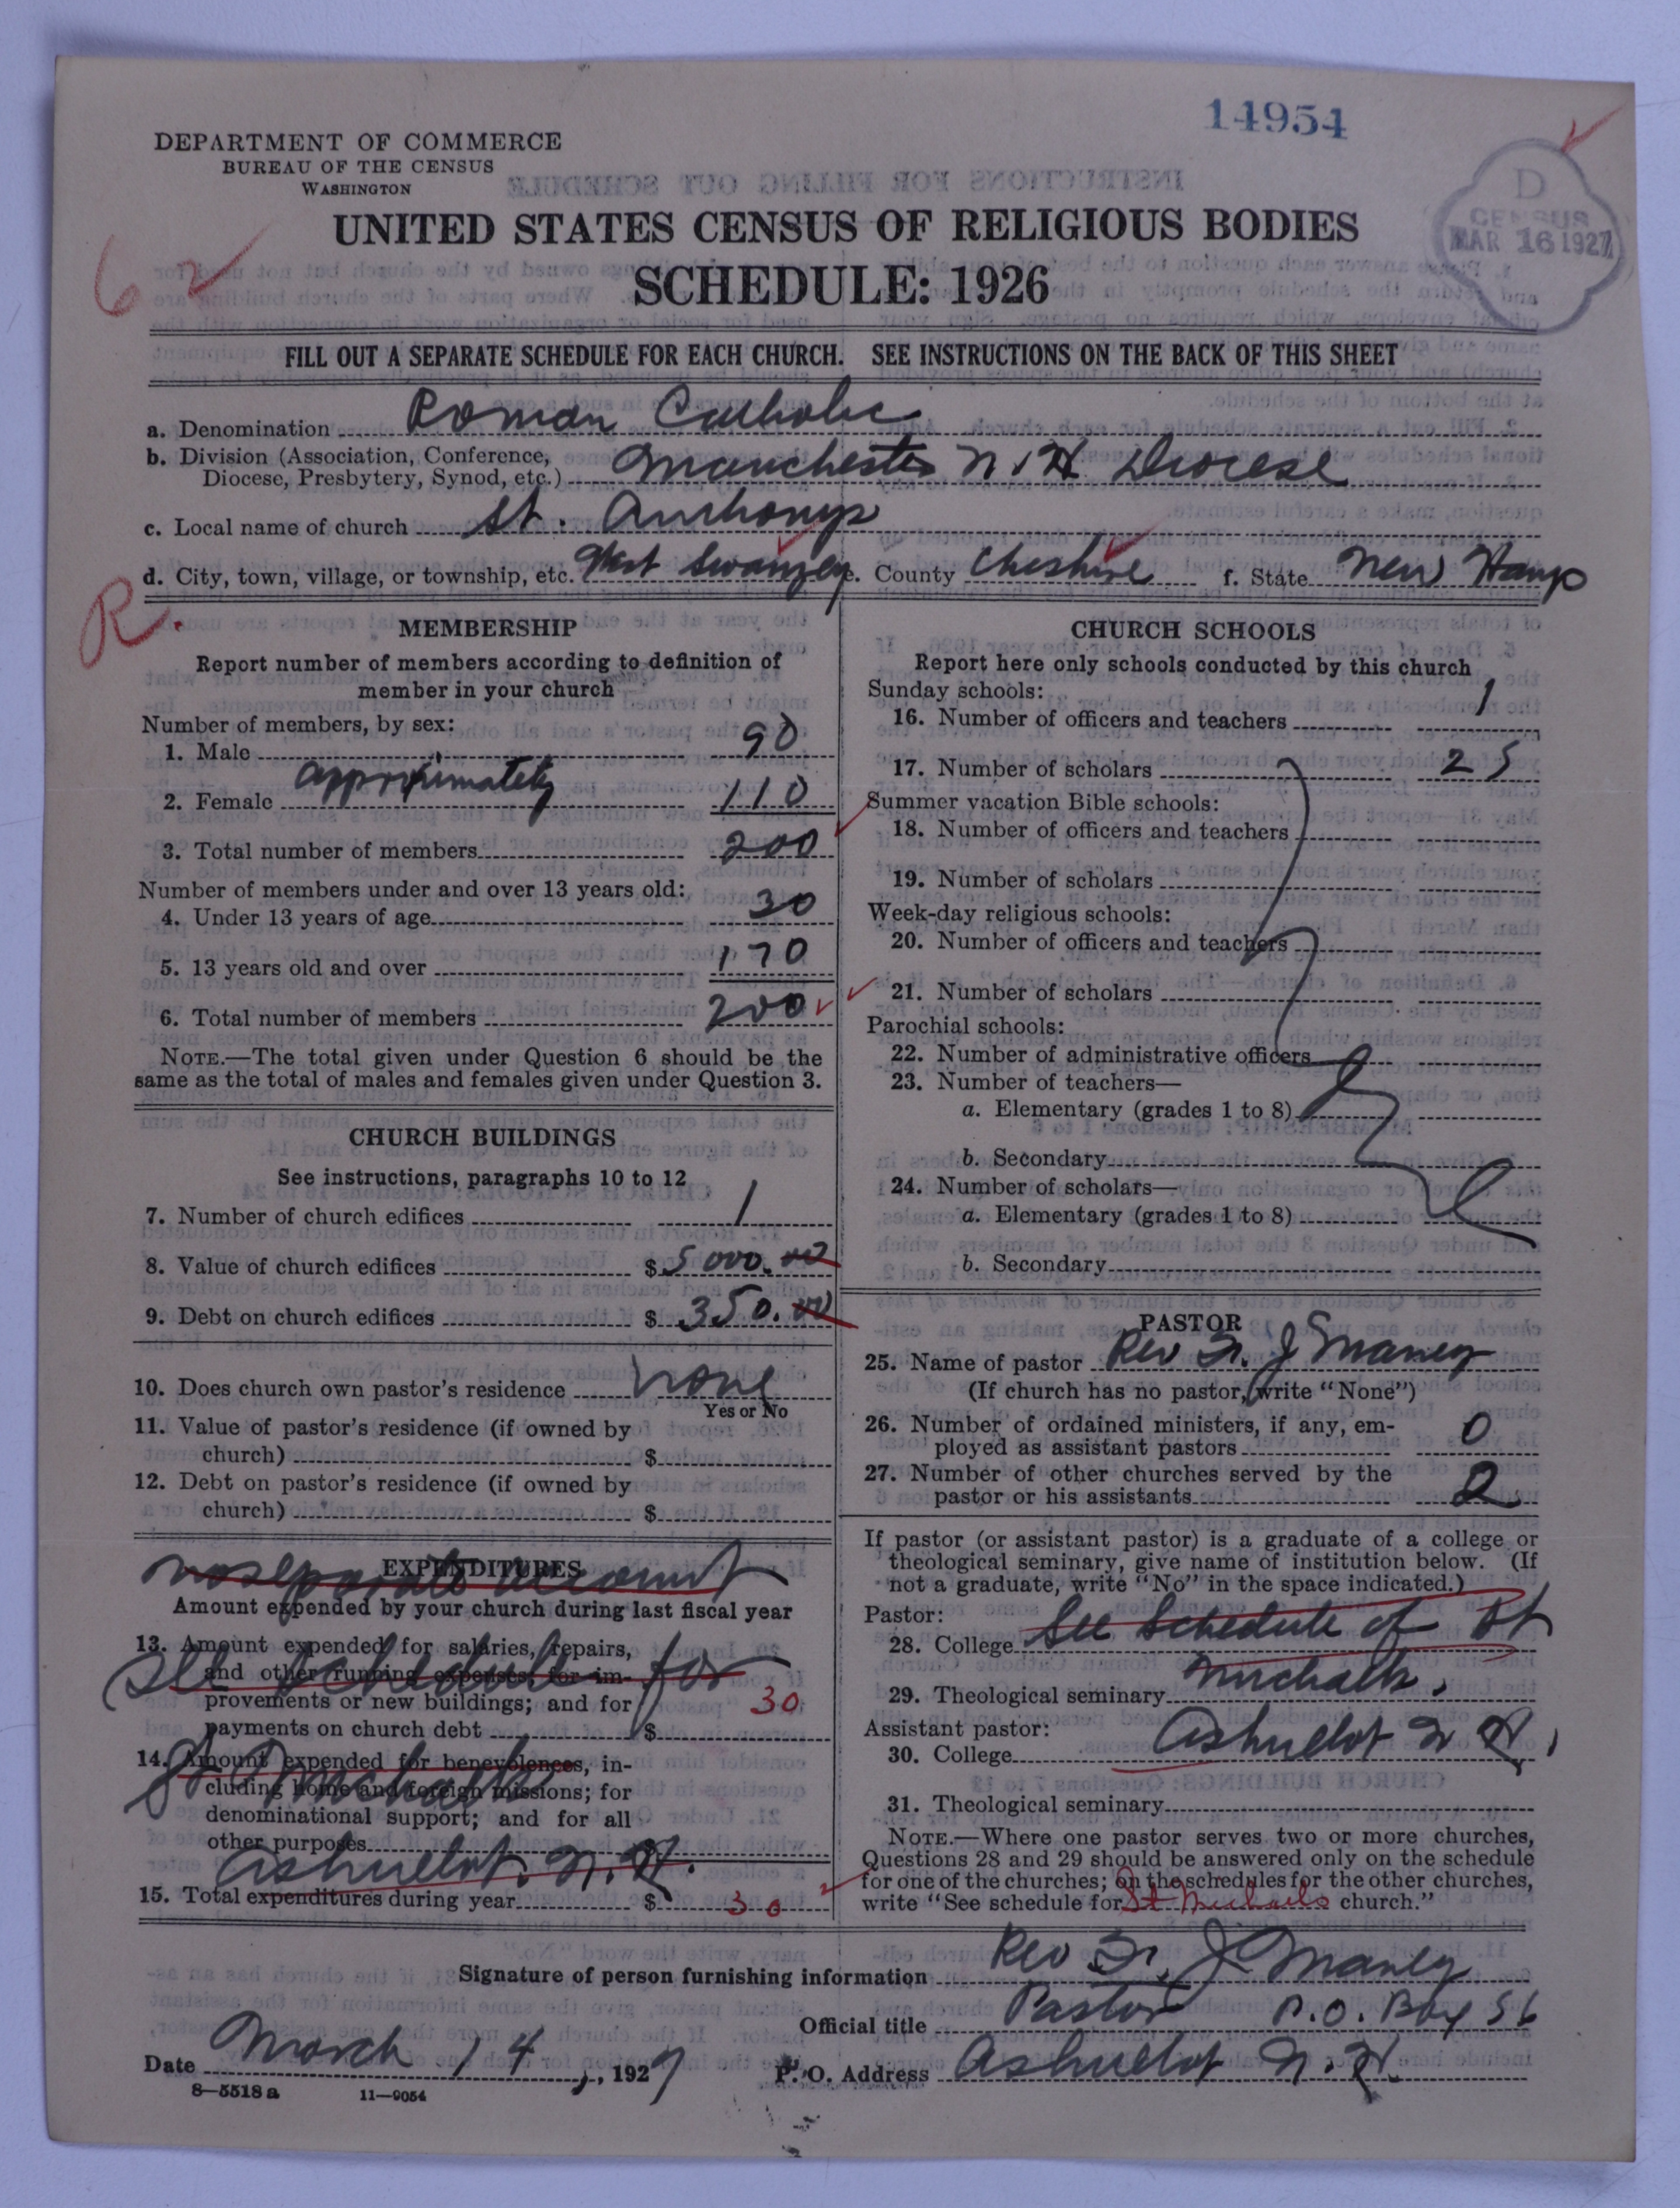 14954
DEPARTMENT OF COMMERCE
BUREAU OF THE CENSUS
WASHINGTON
D
CENSUS
MAR 16 1927
UNITED STATES CENSUS OF RELIGIOUS BODIES
SCHEDULE: 1926
62
FILL OUT A SEPARATE SCHEDULE FOR EACH CHURCH. SEE INSTRUCTIONS ON THE BACK OF THIS SHEET
a. Denomination Roman Catholic
b. Division (Association, Conference, Diocese, Presbytery, Synod, etc.) Manchester N.H. Diocese
c. Local name of church St. Anthonys
d. City, town, village, or township, etc. West Swanzey e. County Cheshire f. State New Hamp
R.
MEMBERSHIP
Report number of members according to definition of
member in your church
Number of members, by sex:
1. Male 90
approximately
2. Female 110
3. Total number of members 200
Number of members under and over 13 years old:
4. Under 13 years of age 30
5. 13 years old and over 170
6. Total number of members 200
NOTE.—The total given under Question 6 should be the
same as the total of males and females given under Question 3.
CHURCH BUILDINGS
See instructions, paragraphs 10 to 12
7. Number of church edifices 1
8. Value of church edifices $ 5000.00
9. Debt on church edifices $ 350.00
10. Does church own pastor's residence none
Yes or No
11. Value of pastor's residence (if owned by
church) $
12. Debt on pastor's residence (if owned by
church) $
EXPENDITURES
no separate account
Amount expended by your church during last fiscal year
13. Amount expended for salaries, repairs,
and other running expenses; for im-
See schedule for
provements or new buildings; and for
payments on church debt $ 30
14. Amount expended for benevolences, in-
St Michaels
cluding home and foreign missions; for
denominational support; and for all
other purposes $
Ashuelot. N.H.
15. Total expenditures during year $ 30
CHURCH SCHOOLS
Report here only schools conducted by this church
Sunday schools:
16. Number of officers and teachers 1
17. Number of scholars 25
Summer vacation Bible schools:
18. Number of officers and teachers
19. Number of scholars
Week-day religious schools:
20. Number of officers and teachers
21. Number of scholars
Parochial schools:
22. Number of administrative officers
23. Number of teachers—
a. Elementary (grades 1 to 8)
b. Secondary
24. Number of scholars—
a. Elementary (grades 1 to 8)
b. Secondary
PASTOR
25. Name of pastor Rev Fr. J Maney
(If church has no pastor, write "None")
26. Number of ordained ministers, if any, em-
ployed as assistant pastors 0
27. Number of other churches served by the
pastor or his assistants 2
If pastor (or assistant pastor) is a graduate of a college or
theological seminary, give name of institution below. (If
not a graduate, write "No" in the space indicated.)
Pastor:
28. College See Schedule of St
29. Theological seminary Michaels.
Assistant pastor:
30. College Ashuelot N H,
31. Theological seminary
NOTE.—Where one pastor serves two or more churches,
Questions 28 and 29 should be answered only on the schedule
for one of the churches; on the schedules for the other churches,
write "See schedule for St Michaels church."
Signature of person furnishing information Rev Fr. J Maney
Official title Pastor P.O. Box 56
Date March 14, 1927 P. O. Address Ashuelot N.H.
8—5518 a 11—9054